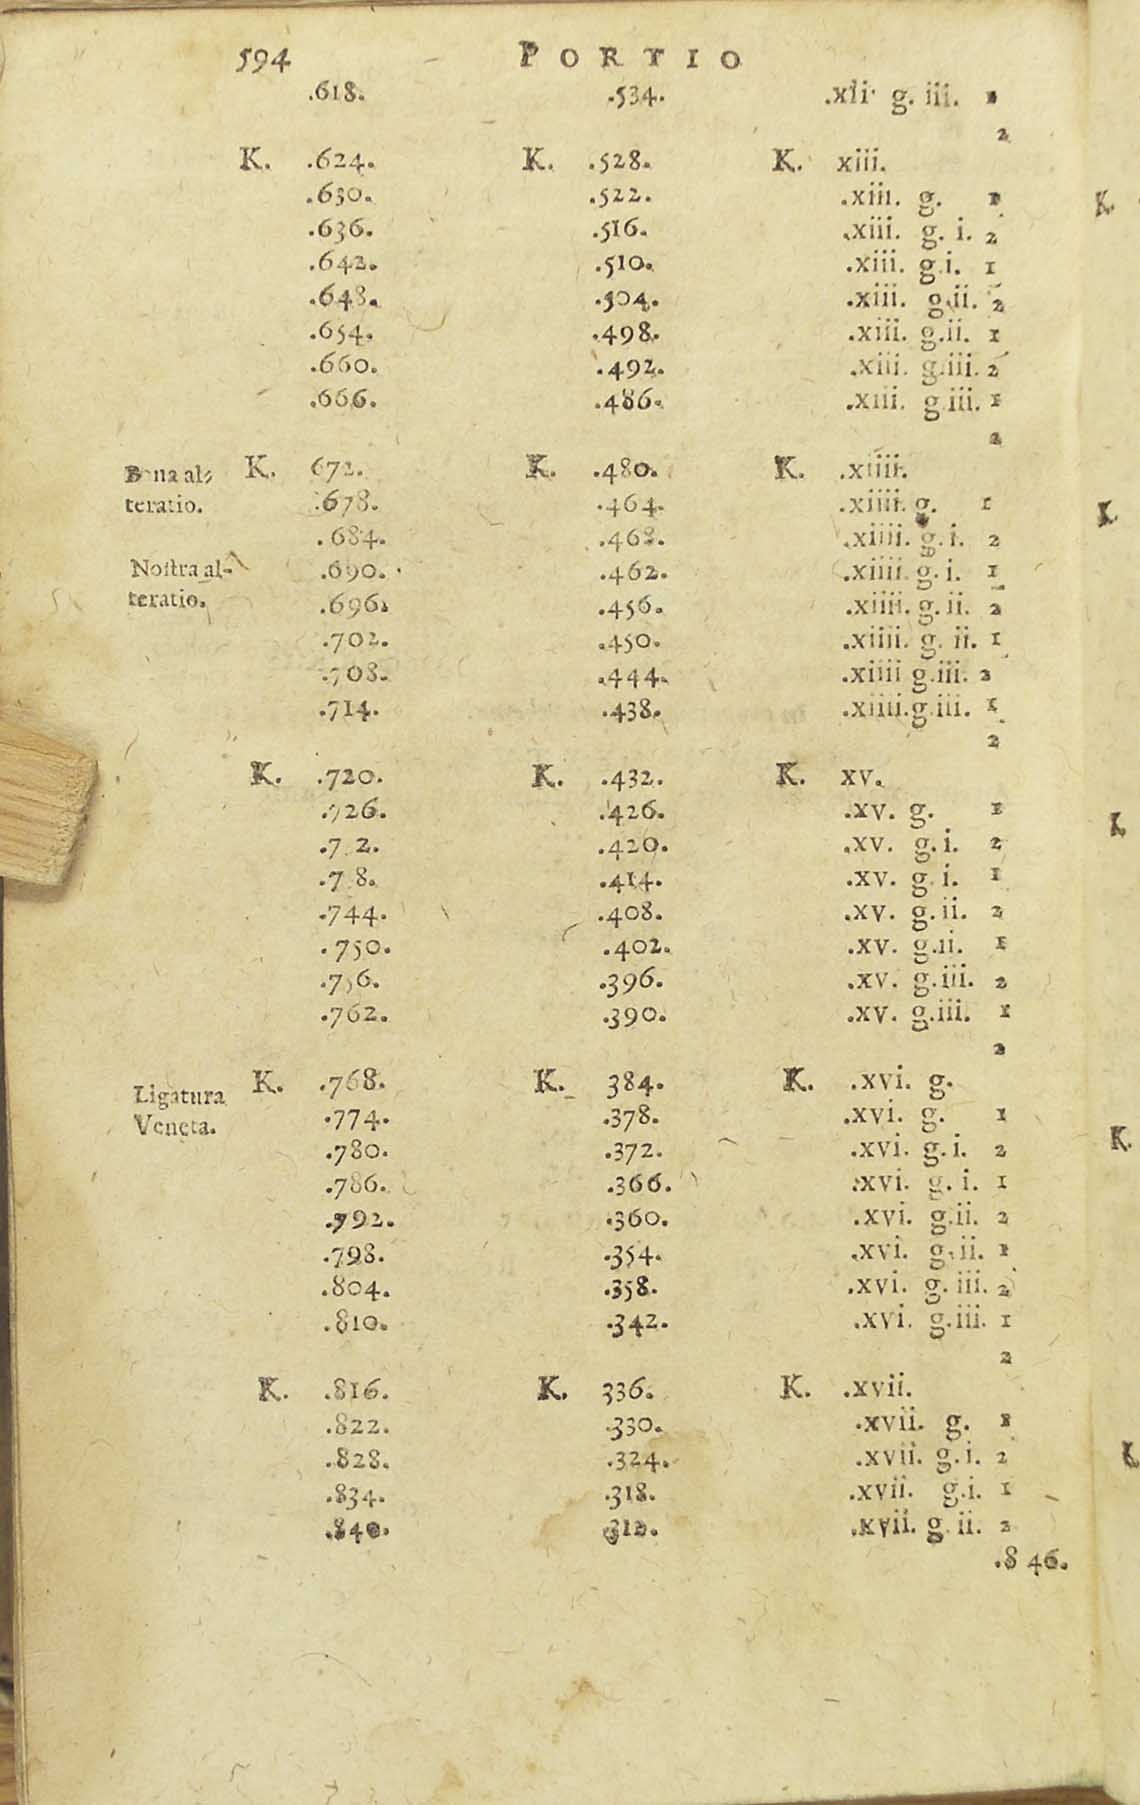 594 PORTIO
.618. .534. .xii. g. iii. 1
2
K. .624. K. .528. K. xiii.
.630. .522. .xiii. g. 1
.636. .516. .xiii. g. i. 2
.642. .510. .xiii. g.i. 1
.648. .504. .xiii. g.ii. 2
.654. .498. .xiii. g.ii. 1
.660. .492. .xiii. g.iii. 2
.666. .486. .xiii. g.iii. 1
2
Bona al- K. 672. K. .480. K. .xiiii.
teratio. .678. .464. .xiiii. g. 1
.684. .468. .xiiii. g. i. 2
Nostra al- .690. .462. .xiiii. g. i. 1
teratio. .696. .456. .xiiii. g. ii. 2
.702. .450. .xiiii. g. ii. 1
.708. .444. .xiiii g.iii. 2
.714. .438. .xiiii.g.iii. 1
2
K. .720. K. .432. K. xv.
.726. .426. .xv. g. 1
.7 2. .420. .xv. g. i. 2
.7 8. .414. .xv. g. i. 1
.744. .408. .xv. g. ii. 2
.750. .402. .xv. g.ii. 1
.756. .396. .xv. g. iii. 2
.762. .390. .xv. g.iii. 1
2
Ligatura K. .768. K. 384. K. .xvi. g.
Veneta. .774. .378. .xvi. g. 1
.780. .372. .xvi. g. i. 2
.786. .366. .xvi. g. i. 1
.792. .360. .xvi. g.ii. 2
.798. .354. .xvi. g.ii. 1
.804. .358. .xvi. g. iii. 2
.810. .342. .xvi. g.iii. 1
2
K. .816. K. 336. K. .xvii.
.822. .330. .xvii. g. 1
.828. .324. .xvii. g.i. 2
.834. .318. .xvii. g.i. 1
.840. 312. .xvii. g. ii. 2
.8 46.